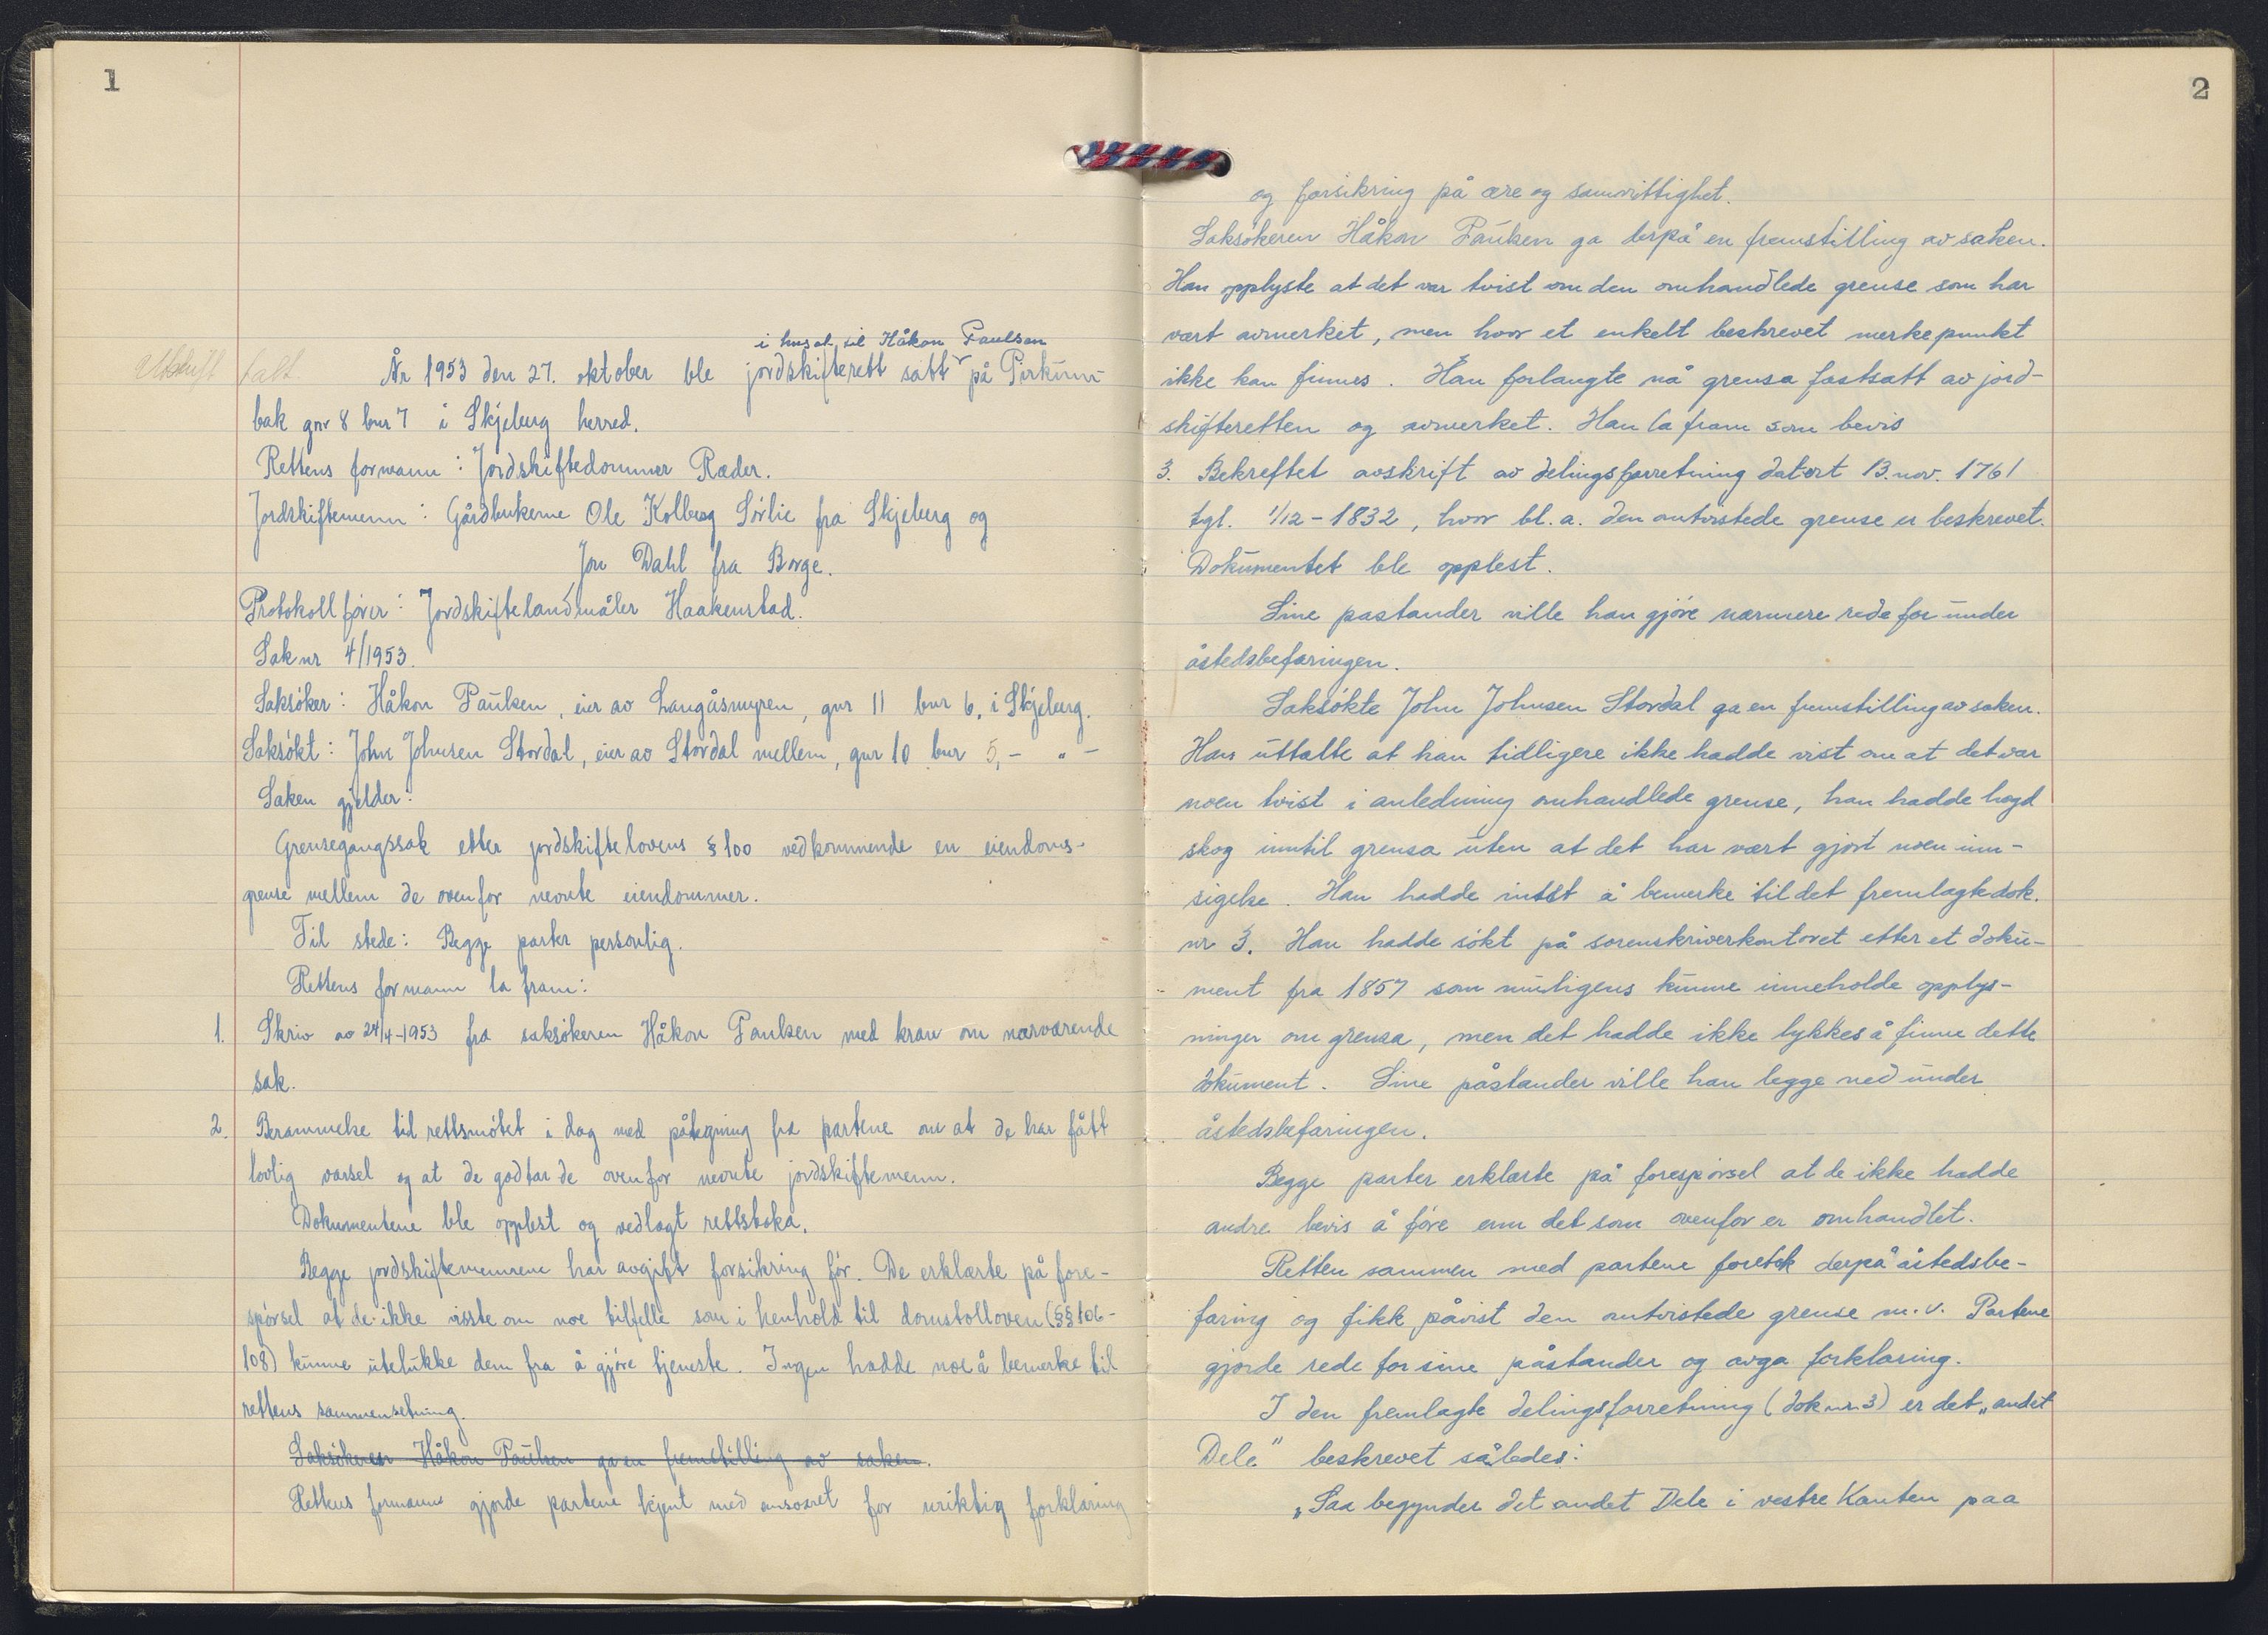 1
i huset til Håkon Paulsen
Utskrift tatt. År 1953 den 27. oktober ble jordskifterett satt på Pirkinn-
bak gnr 8 bnr 7 i Skjeberg herred.
Rettens formann: Jordskiftedommer Ræder.
Jordskiftemenn: Gårdbrukerne Ole Kolberg Sørlie fra Skjeberg og
Jon Dahl fra Borge.
Protokollfører: Jordskiftelandmåler Haakenstad.
Sak nr 4/1953.
Saksøker: Håkon Paulsen, eier av Langåsmyren, gnr 11 bnr 6, i Skjeberg.
Saksøkt: John Johnsen Stordal, eier av Stordal mellem, gnr 10 bnr 5, - " -
Saken gjelder:
Grensegangssak etter jordskiftelovens § 100 vedkommende en eiendoms-
grense mellem de ovenfor nevnte eiendommer.
Til stede: Begge parter personlig.
Rettens formann la fram:
1. Skriv av 24/4-1953 fra saksøkeren Håkon Paulsen med krav om nærværende
sak.
2. Berammelse til rettsmøtet i dag med påtegning fra partene om at de har fått
lovlig varsel og at de godtar de ovenfor nevnte jordskiftemenn.
Dokumentene ble opplest og vedlagt rettsboka.
Begge jordskiftemennene har avgitt forsikring før. De erklærte på fore-
spørsel at de ikke visste om noe tilfelle som i henhold til domstolloven (§§ 106-
108) kunne utelukke dem fra å gjøre tjeneste. Ingen hadde noe å bemerke til
rettens sammensetning.
Saksøkeren Håkon Paulsen ga en fremstilling av saken.
Rettens formann gjorde partene kjent med ansvaret for uriktig forklaring
2
og forsikring på ære og samvittighet.
Saksøkeren Håkon Paulsen ga derpå en fremstilling av saken.
Han opplyste at det var tvist om den omhandlede grense som har
vært avmerket, men hvor et enkelt beskrevet merkepunkt
ikke kan finnes. Han forlangte nå grensa fastsatt av jord-
skifteretten og avmerket. Han la fram som bevis
3. Bekreftet avskrift av delingsforretning datert 13. nov. 1761
tgl. 1/12-1832, hvor bl.a. den omtvistede grense er beskrevet.
Dokumentet ble opplest.
Sine pastander ville han gjøre nærmere rede for under
åstedsbefaringen.
Saksøkte John Johnsen Stordal ga en fremstilling av saken.
Han uttalte at han tidligere ikke hadde vist om at det var
noen tvist i anledning omhandlede grense, han hadde hogd
skog inntil grensa uten at det har vært gjort noen inn-
sigelse. Han hadde intet å bemerke til det fremlagte dok.
nr 3. Han hadde søkt på sorenskriverkontoret etter et doku-
ment fra 1857 som muligens kunne inneholde opplys-
ninger om grensa, men det hadde ikke lykkes å finne dette
dokument. Sine påstander ville han legge ned under
åstedsbefaringen.
Begge parter erklærte på forespørsel at de ikke hadde
andre bevis å føre enn det som ovenfor er omhandlet.
Retten sammen med partene foretok derpå åstedsbe-
faring og fikk påvist den omtvistede grense m.v. Partene
gjorde rede for sine påstander og avga forklaring.
I den fremlagte delingsforretning (dok nr. 3) er det „andet
Dele" beskrevet således:
„Saa begynder det andet Dele i vestre Kanten paa